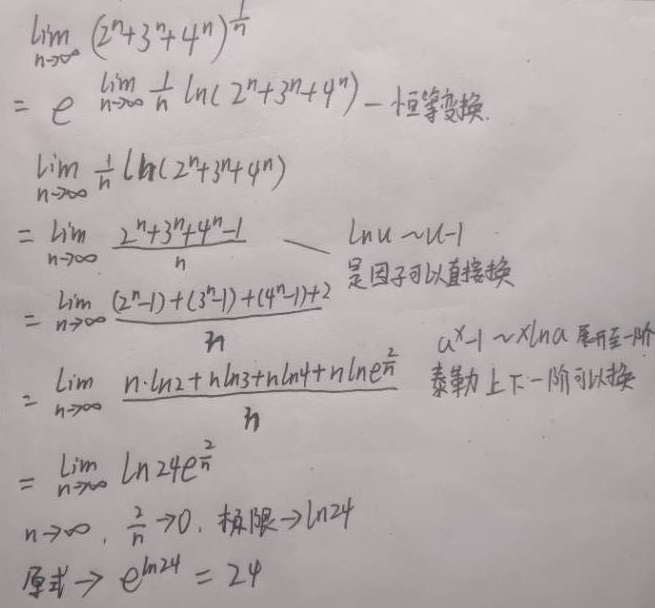 lim n→∞ (2ⁿ+3ⁿ+4ⁿ)^(1/n)
= e^(lim n→∞ 1/n ln(2ⁿ+3ⁿ+4ⁿ)) — 恒等变换.
lim n→∞ 1/n ln(2ⁿ+3ⁿ+4ⁿ)
= lim n→∞ (2ⁿ+3ⁿ+4ⁿ-1)/n — lnu ~ u-1
是因子可以直接换
= lim n→∞ ((2ⁿ-1)+(3ⁿ-1)+(4ⁿ-1)+2)/n
aˣ-1 ~ xlna 展开至一阶
= lim n→∞ (n·ln2+nln3+nln4+nlne^(2/n))/n 泰勒上下一阶可以换
= lim n→∞ ln24e^(2/n)
n→∞, 2/n→0. 极限→ln24
原式→ e^(ln24) = 24